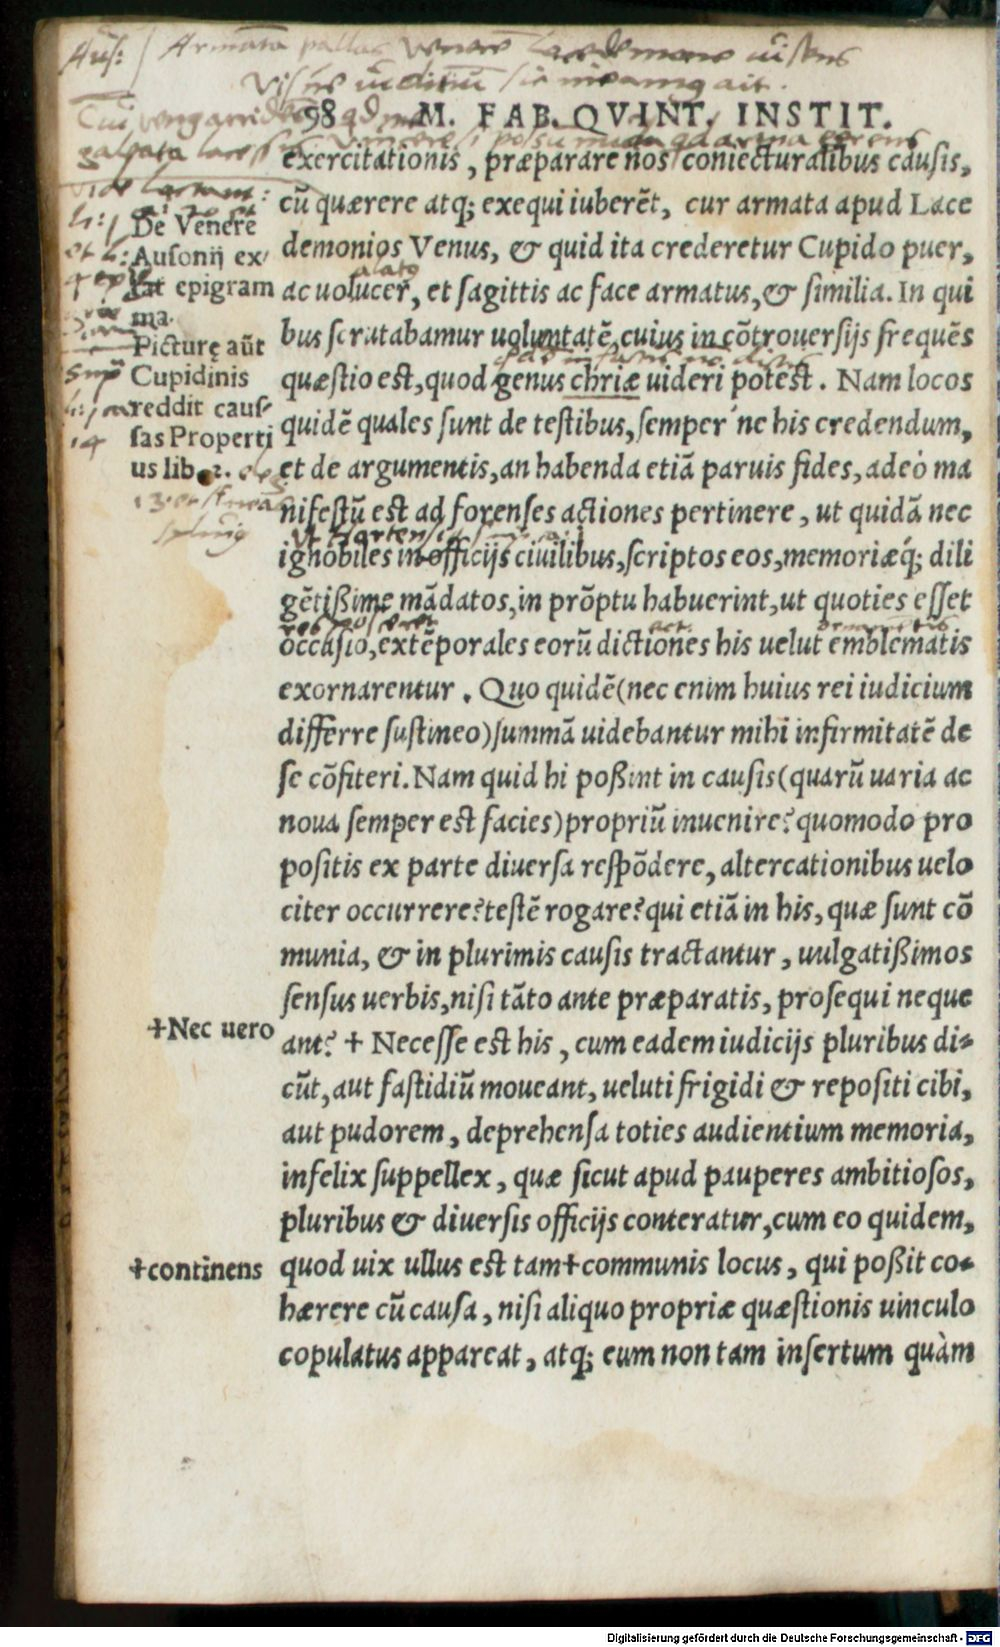 Aus: Armata pallas Venerē Lacedemone uisens
Vis ne iuditiū sic ineamus ait.
Cui Venus arridēs qd me
galeata lacessis Vincere si possum nuda qd arma gerens
98 M. FAB. QVINT. INSTIT.
exercitationis, præparare nos coniecturalibus causis,
cū quærere atq; exequi iuberēt, cur armata apud Lace
demonios Venus, & quid ita crederetur Cupido puer,
alato
ac uolucer, et sagittis ac face armatus, & similia. In qui
bus scrutabamur uoluntatē, cuius in cōtrouersijs frequēs
quæstio est, quod genus chriæ uideri potest. Nam locos
quidē quales sunt de testibus, semper ne his credendum,
et de argumentis, an habenda etiā paruis fides, adeò ma
nifestū est ad forenses actiones pertinere, ut quidā nec
ut Hortensius
ignobiles in officijs ciuilibus, scriptos eos, memoriæq́; dili
gētißime mādatos, in prōptu habuerint, ut quoties esset
occasio, extēporales eorū dictiones his uelut emblematis
exornarentur. Quo quidē (nec enim huius rei iudicium
differre sustineo) summā uidebantur mihi infirmitatē de
se cōfiteri. Nam quid hi poßint in causis (quarū uaria ac
noua semper est facies) propriū inuenire? quomodo pro
positis ex parte diuersa respōdere, altercationibus uelo
citer occurrere? testē rogare? qui etiā in his, quæ sunt cō
munia, & in plurimis causis tractantur, uulgatißimos
sensus uerbis, nisi tāto ante præparatis, prosequi neque
ant? + Necesse est his, cum eadem iudicijs pluribus di-
cūt, aut fastidiū moueant, ueluti frigidi & repositi cibi,
aut pudorem, deprehensa toties audientium memoria,
infelix suppellex, quæ sicut apud pauperes ambitiosos,
pluribus & diuersis officijs conteratur, cum eo quidem,
quod uix ullus est tam + communis locus, qui poßit co-
hærere cū causa, nisi aliquo propriæ quæstionis uinculo
copulatus appareat, atq; eum non tam insertum quàm
De Venere
Ausonij ex/
tat epigram
ma.
Picturę aūt
Cupidinis
reddit caus-
sas Properti
us lib. 2.
+Nec uero
+continens
Digitalisierung gefördert durch die Deutsche Forschungsgemeinschaft - DFG